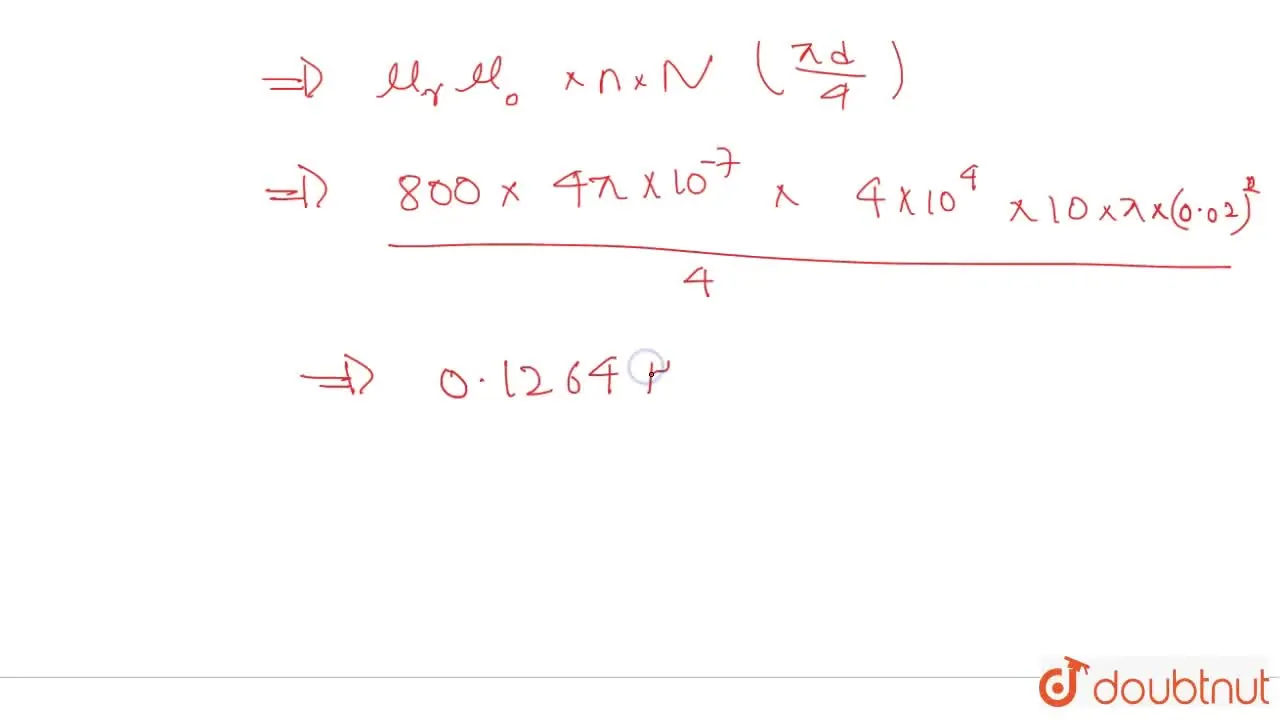 ⇒ μᵣ μ₀ × n × N (πd/4)
⇒ 800 × 4π × 10⁻⁷ × 4 × 10⁴ × 10 × π × (0.02)² / 4
⇒ 0.1264
doubtnut